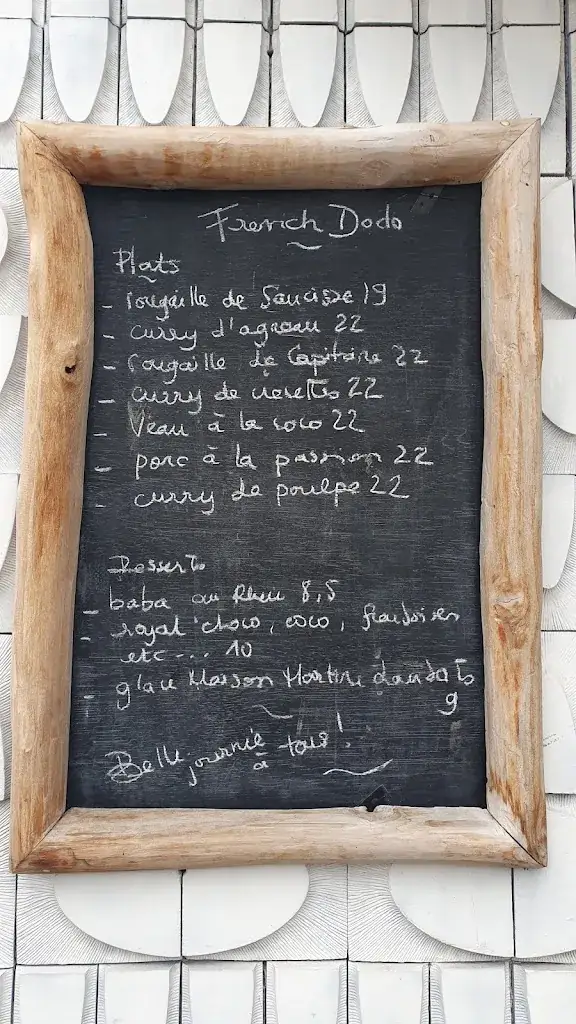 French Dodo
Plats
- rougaille de Saucisse 19
- curry d'agneau 22
- rougaille de Capitaine 22
- curry de crevettes 22
- Veau à la coco 22
- porc à la passion 22
- curry de poulpe 22
Desserts
- baba au Rhum 8,5
- royal choco, coco, framboisier
etc... 10
- glace Maison Martine Lambert
9
Belle journée
à tous !